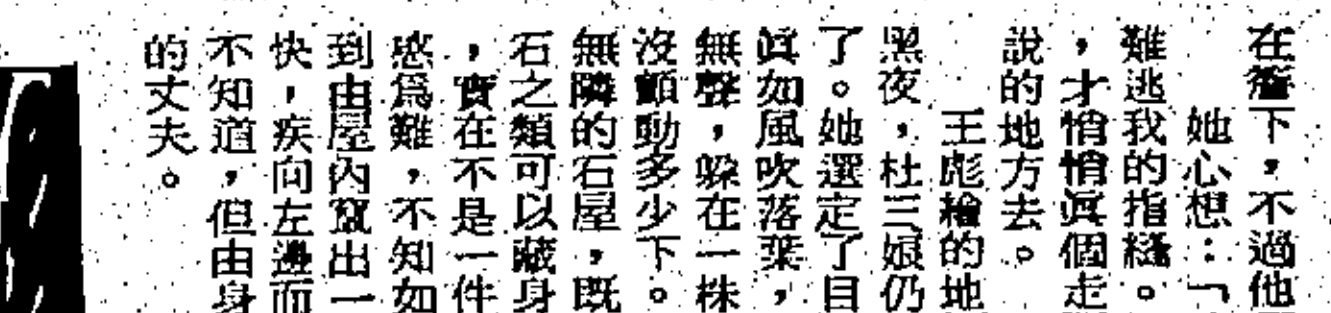 在簷下，不過他
她心想：「
難逃我的指縫。
，才悄悄眞個走
說的地方去。
王彪繪的地
黑夜，杜三娘仍
了。她選定了目
眞如風吹落葉，
無聲，躲在一株
沒顫動多少下。
無隣的石屋，既
石之類可以藏身
，實在不是一件
惑爲難，不知如
到由屋內竄出一
快，疾向左邊而
不知道，但由身
的丈夫。